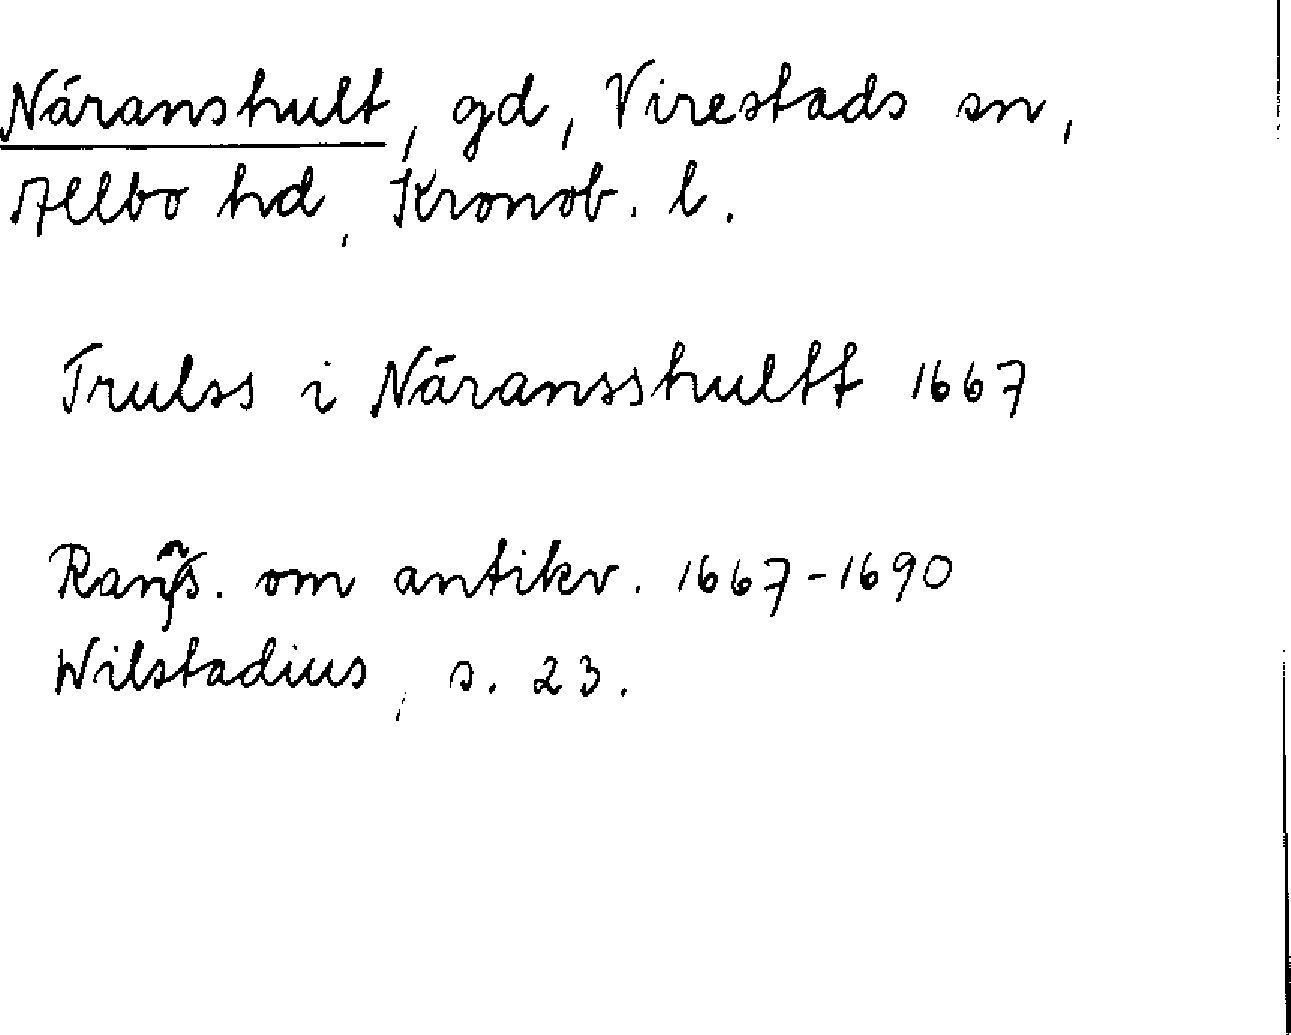 Näranshult, gd, Virestads sn,
Allbo hd, Kronob. l.
Trulss i Näransshultt 1667
Rans. om antikv. 1667-1690
Wilstadius, s. 23.